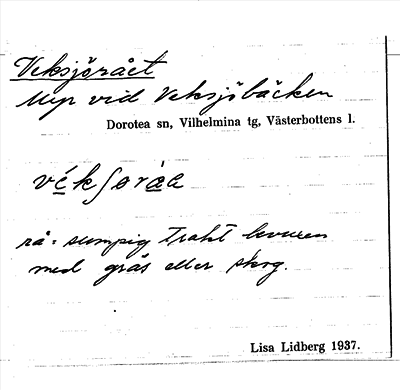 Veksjörået
Myr vid Veksjöbäcken
Dorotea sn, Vilhelmina tg, Västerbottens l.
vékʃoràa
rå = sumpig trakt
med gräs eller skog.
Lisa Lidberg 1937.